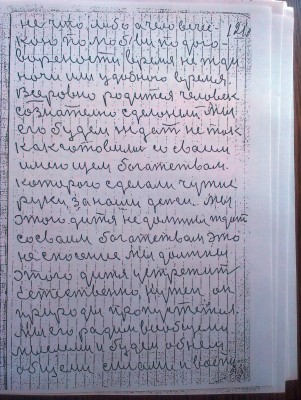 не что либо а чело вече-
кою по любви по дого-
вирености, время не жди
ночи или удобного время.
Всеровно родится человек
сознательно сделоный. Мы
его будем ждат не так
как готовилис со своим
имеющем богатетвам.
которого сделали чужие
руки, за наши денги. Мы
этого дитя не должны ждат
со своим богатетвам это
на спосение. Мы должны
этого дитя устретит
естественно, нужен он
природи
Мы его ради вообщем
мыслем и будем о нем
общеми силами